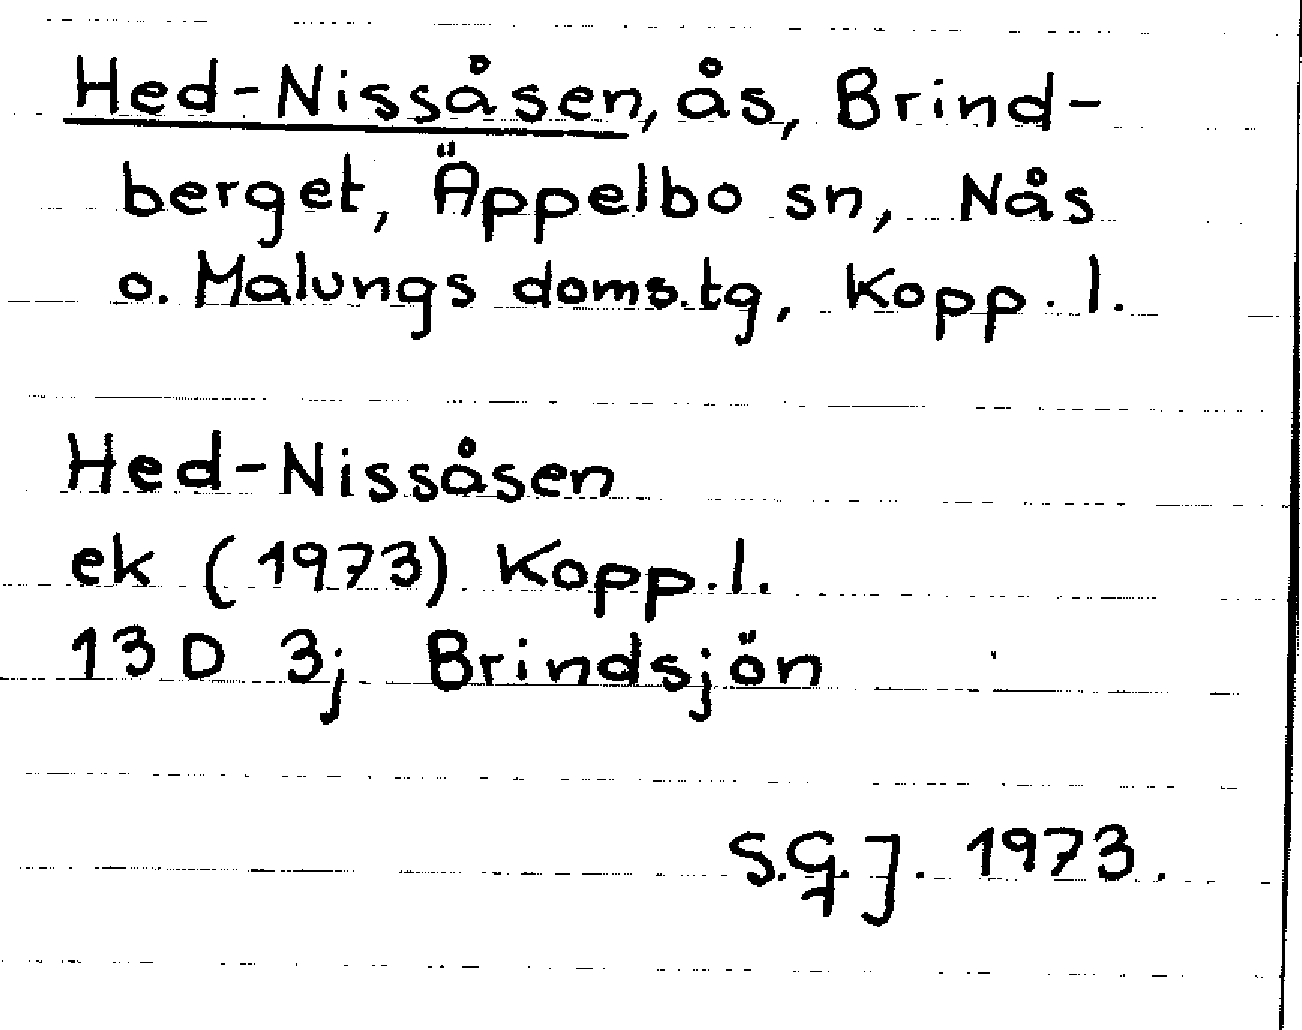 Hed-Nissåsen, ås, Brind-
berget, Äppelbo sn, Nås
o. Malungs doms.tg, Kopp.l.
Hed-Nissåsen
ek (1973) Kopp.l.
13 D 3j Brindsjön
S.G.J. 1973.